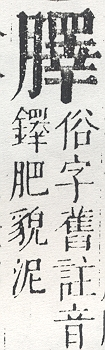 俗字舊註音
鐸肥貌泥